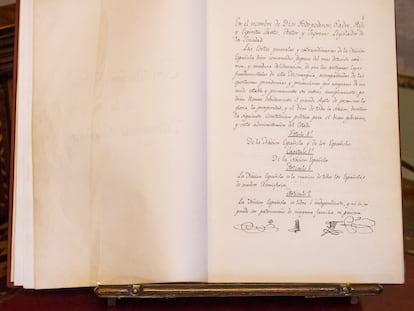 En el nombre de Dios Todopoderoso, Padre, Hijo,
y Espíritu Santo, Autor y Supremo Legislador de
la Sociedad.
Las Cortes generales y extraordinarias de la Nación
Española, bien convencidas, después del mas detenido exá-
men, y madura deliberacion, de que las antiguas leyes
fundamentales de esta Monarquia, acompañadas de las
oportunas providencias y precauciones, que aseguren de un
modo estable y permanente su entero cumplimiento, po-
drán llenar debidamente el grande objeto de promover la
gloria, la prosperidad, y el bien de toda la Nación, decretan
la siguiente Constitucion politica para el buen gobierno,
y recta administracion del Estado.
Titulo 1º
De la Nación Española y de los Españoles.
Capitulo 1º
De la Nación Española.
Articulo 1.
La Nación Española es la reunion de todos los Españoles
de ambos Hemisferios.
Articulo 2.
La Nación Española es libre é independiente, y no es, ni
puede ser patrimonio de ninguna familia, ni persona.